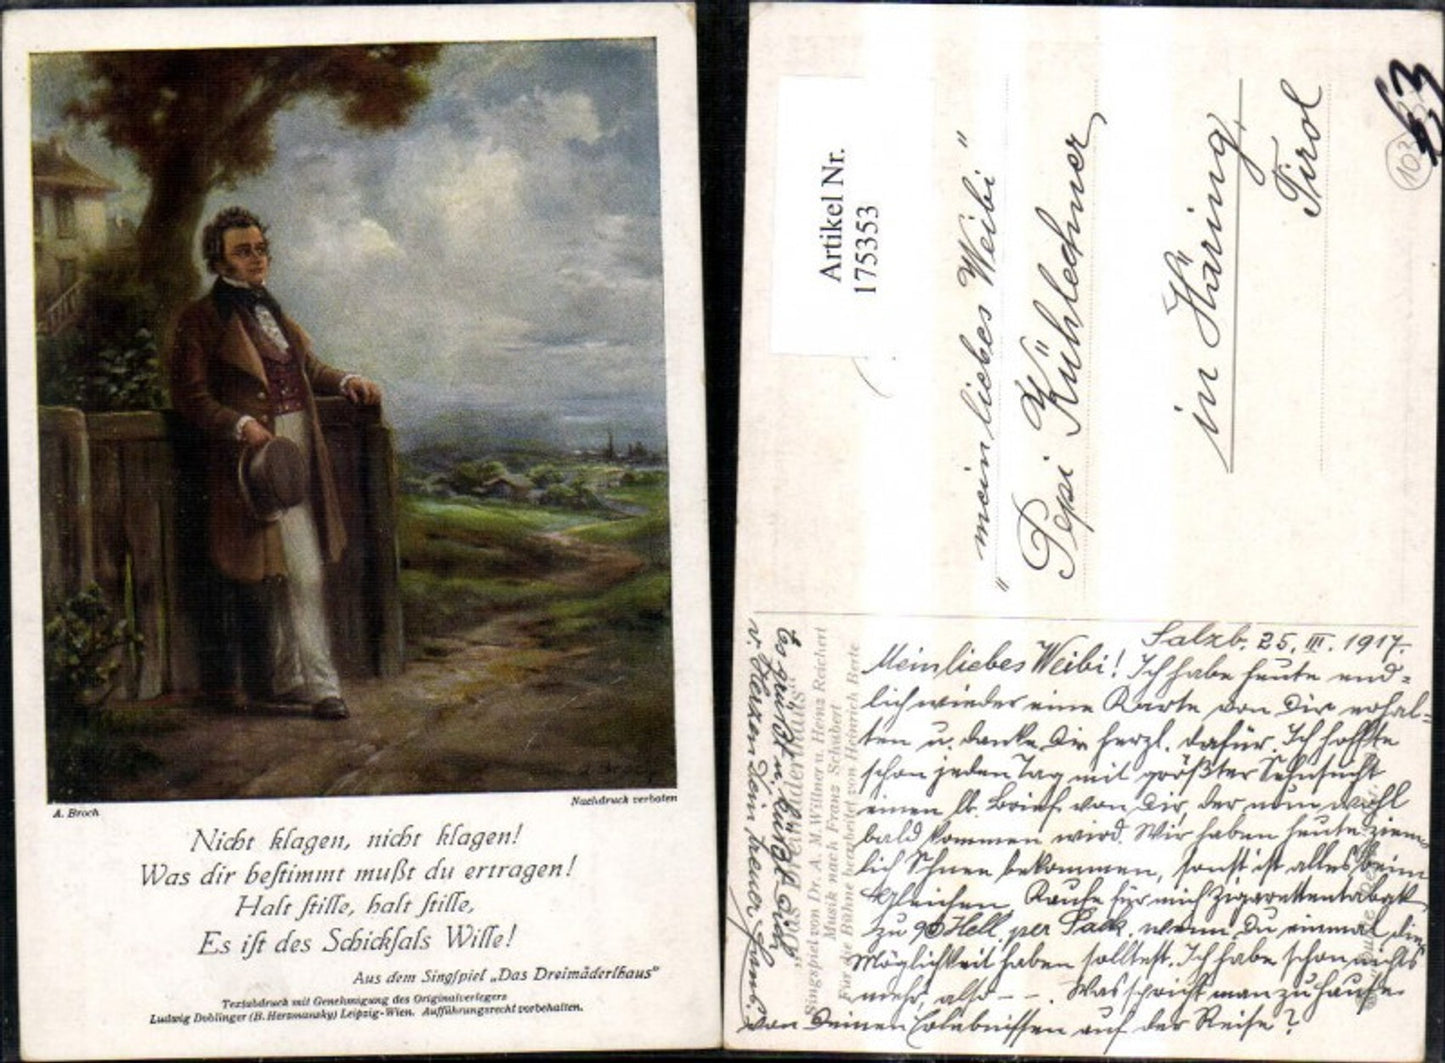 A. Broch
Nachdruck verboten
Nicht klagen, nicht klagen!
Was dir bestimmt mußt du ertragen!
Halt stille, halt stille,
Es ist des Schicksals Wille!
Aus dem Singspiel „Das Dreimäderlhaus“
Textabdruck mit Genehmigung des Originalverlegers
Ludwig Doblinger (B. Herzmansky) Leipzig-Wien. Aufführungsrecht vorbehalten.
Artikel Nr.
175353
"mein liebes Weibi"
Pepi Kühlechner
in Häring,
Tirol
63
103
Salzb. 25. III. 1917.
Mein liebes Weibi! Ich habe heute end=
lich wieder eine Karte von Dir erhal=
ten u. danke Dir herzl. dafür. Ich hoffte
schon jeden Tag mit größter Sehnsucht
einen lb. Brief von Dir, der nun wohl
bald kommen wird. Wir haben heute ziem=
lich Schnee bekommen, sonst ist alles beim
gleichen. Kaufe für mich Zigarettentabak
zu 90 Hell. per Pack. wenn Du einmal die
Möglichkeit haben solltest. Ich habe schon nichts
mehr, also - - . Was spricht man zu Hause
von Deinen Erlebnissen auf der Reise?
Es grüßt u. küßt Dich
v. Herzen Dein treuer
„Das Dreimäderlhaus“
Singspiel von Dr. A. M. Willner u. Heinz Reichert
Musik nach Franz Schubert
Für die Bühne bearbeitet von Heinrich Berte